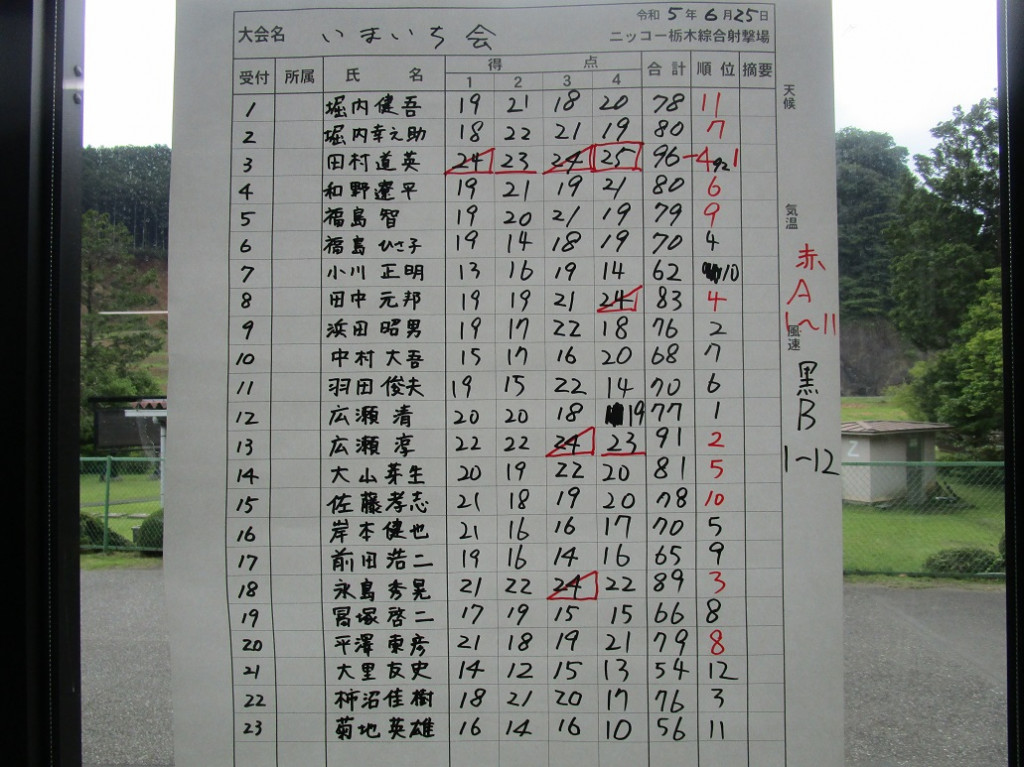 令和 5 年 6 月 25 日
大会名 いまいち会 ニッコー栃木綜合射撃場
受付 所属 氏 名 得 点 合計 順位 摘要
1 2 3 4
1 堀内健吾 19 21 18 20 78 11
2 堀内幸之助 18 22 21 19 80 7
3 田村道英 24 23 24 25 96 -4 92 1
4 和野遼平 19 21 19 21 80 6
5 福島智 19 20 21 19 79 9
6 福島ひさ子 19 14 18 19 70 4
7 小川正明 13 16 19 14 62 10
8 田中元邦 19 19 21 24 83 4
9 浜田昭男 19 17 22 18 76 2
10 中村大吾 15 17 16 20 68 7
11 羽田俊夫 19 15 22 14 70 6
12 広瀬清 20 20 18 19 77 1
13 広瀬淳 22 22 24 23 91 2
14 大山芽生 20 19 22 20 81 5
15 佐藤孝志 21 18 19 20 78 10
16 岸本健也 21 16 16 17 70 5
17 前田浩二 19 16 14 16 65 9
18 永島秀晃 21 22 24 22 89 3
19 冨塚啓二 17 19 15 15 66 8
20 平澤東彦 21 18 19 21 79 8
21 大里友史 14 12 15 13 54 12
22 柿沼佳樹 18 21 20 17 76 3
23 菊地英雄 16 14 16 10 56 11
天候
気温
赤
A
1~11
風速
黒
B
1~12
2